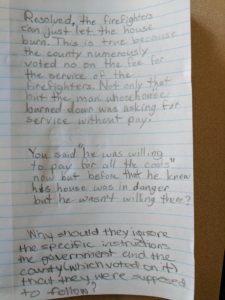 Resolved, the firefighters
can just let the house
burn. This is true because
the county numerously
voted no on the fee for
the service of the
firefighters. Not only that
but the man whose house
burned down was asking for
service without pay.
You said "he was willing
to pay for all the costs"
now but before that he knew
his house was in danger
but he wasn't willing there?
Why should they ignore
the specific instructions
the government and the
county (which voted on it)
that they were supposed
to follow?